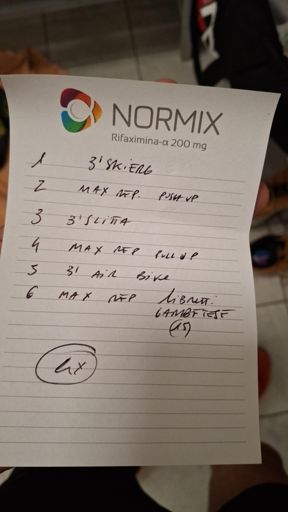 NORMIX
Rifaximina-α 200 mg
1 3' SKIERG
2 MAX REP. PUSH UP
3 3' SLITTA
4 MAX REP PULL UP
5 3' AIR BIKE
6 MAX REP
GAMBE TESE
(15)
4x